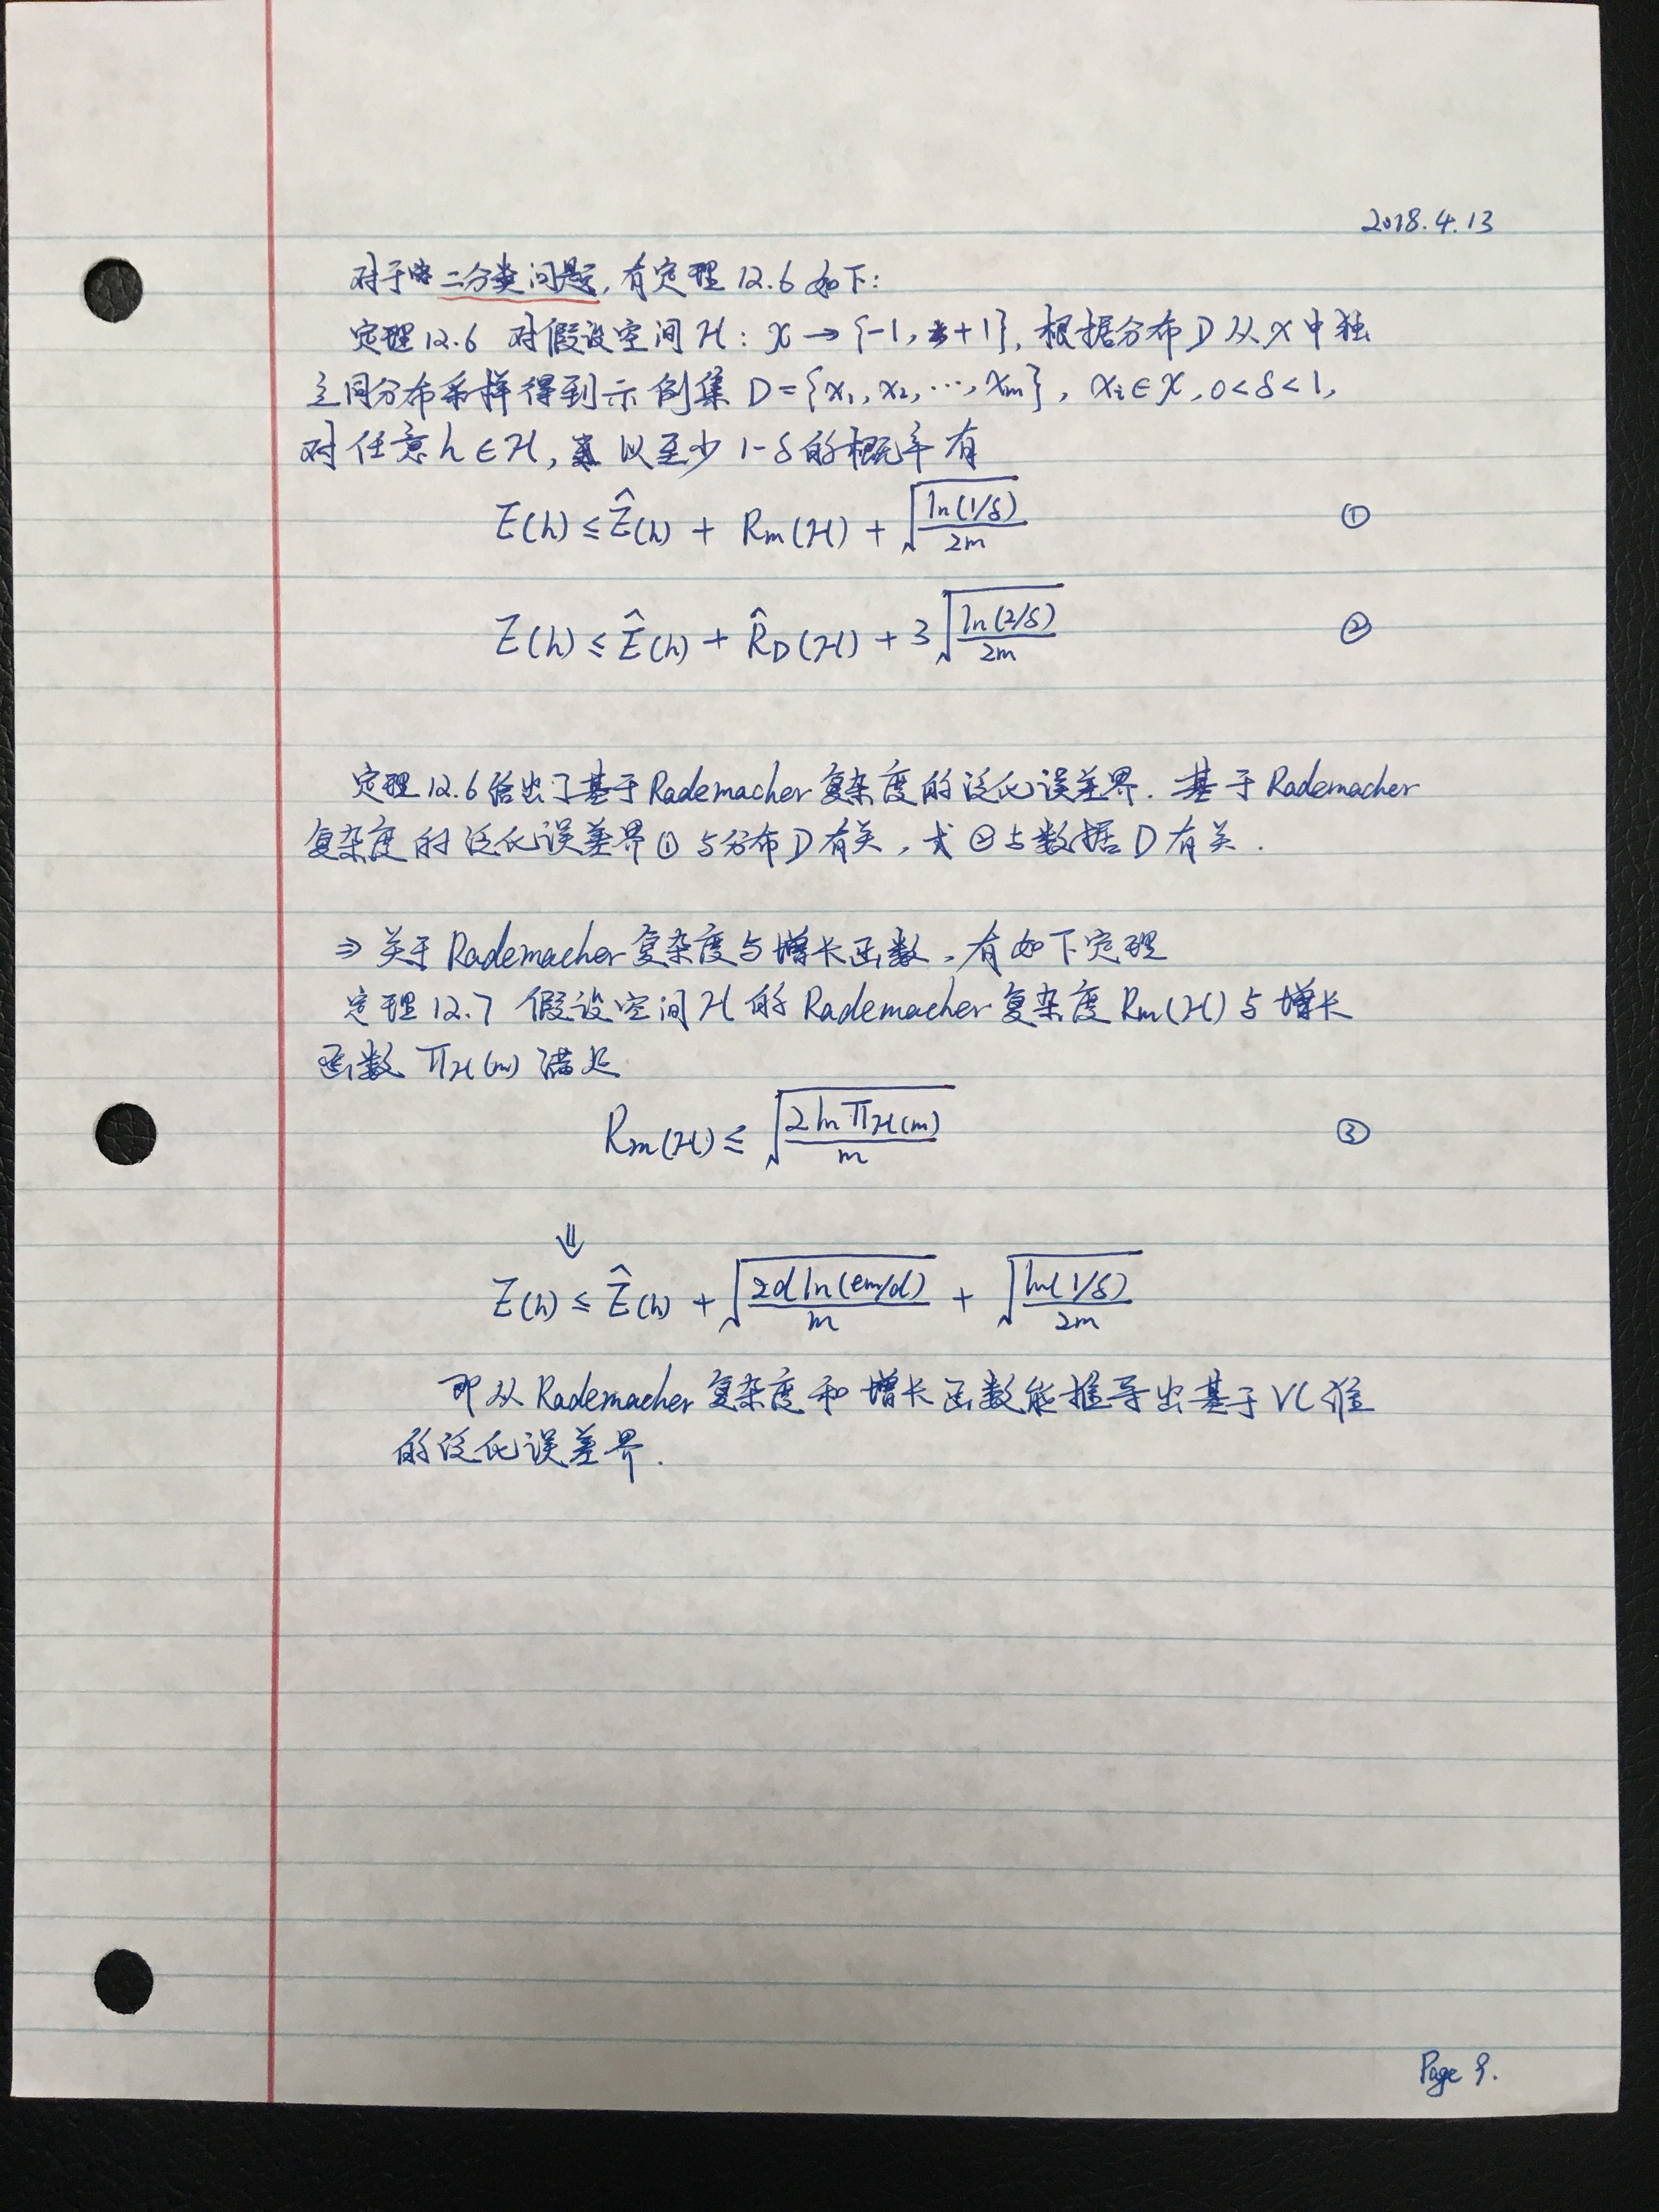 2018.4.13
对于二分类问题,有定理12.6如下:
定理12.6 对假设空间H: X → {-1, +1}, 根据分布D从X中独
立同分布采样得到示例集 D={x₁, x₂, ⋯, xm}, xi∈X, 0<δ<1,
对任意h∈H, 以至少1-δ的概率有
E(h) ≤ Ê(h) + Rm(H) + √(ln(1/δ)/2m) ①
E(h) ≤ Ê(h) + R̂D(H) + 3√(ln(2/δ)/2m) ②
定理12.6给出了基于Rademacher复杂度的泛化误差界. 基于Rademacher
复杂度的泛化误差界①与分布D有关, 式②与数据D有关.
⇒ 关于Rademacher复杂度与增长函数, 有如下定理
定理12.7 假设空间H的Rademacher复杂度Rm(H)与增长
函数 ΠH(m) 满足
Rm(H) ≤ √(2 ln ΠH(m)/m) ③
⇓
E(h) ≤ Ê(h) + √(2d ln(em/d)/m) + √(ln(1/δ)/2m)
即从Rademacher复杂度和增长函数能推导出基于VC维
的泛化误差界.
Page 9.